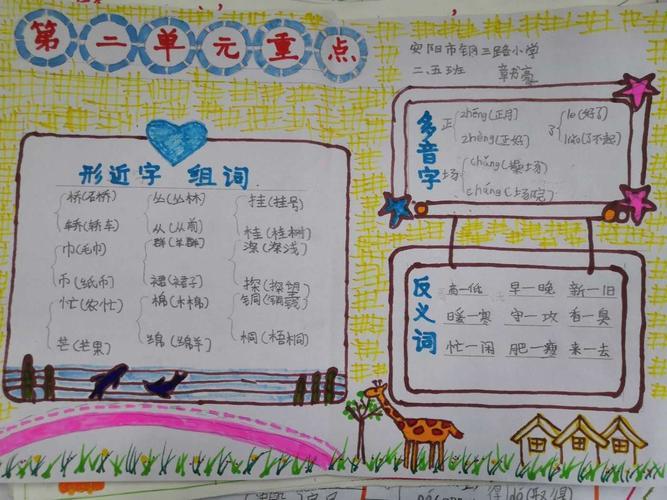 第二单元重点
安阳市钢三路小学
二.五班
多音字
正 zhēng(正月)
zhèng(正好)
了 le(好了)
liǎo(了不起)
场 chǎng(操场)
cháng(场院)
形近字 组词
桥(石桥) 丛(丛林) 挂(挂号)
轿(轿车) 从(从前) 桂(桂树)
巾(毛巾) 群(羊群) 深(深浅)
币(纸币) 裙(裙子) 探(探望)
忙(农忙) 棉(木棉) 铜(铜钱)
芒(芒果) 绵(绵羊) 桐(梧桐)
反义词
高—低 早—晚 新—旧
暖—寒 守—攻 香—臭
忙—闲 肥—瘦 来—去